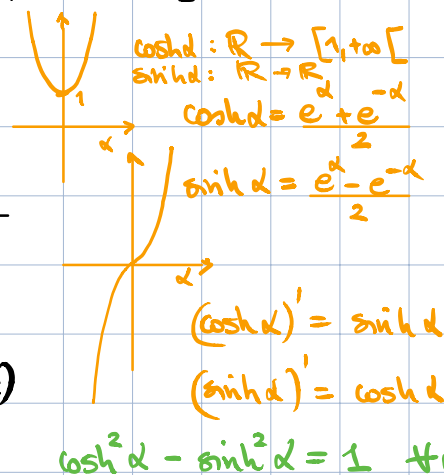 cosh α : ℝ → [1,+∞[
sinh α : ℝ → ℝ
1
cosh α = (e^α + e^-α) / 2
α
sinh α = (e^α - e^-α) / 2
α
(cosh α)' = sinh α
(sinh α)' = cosh α
cosh² α - sinh² α = 1 ∀